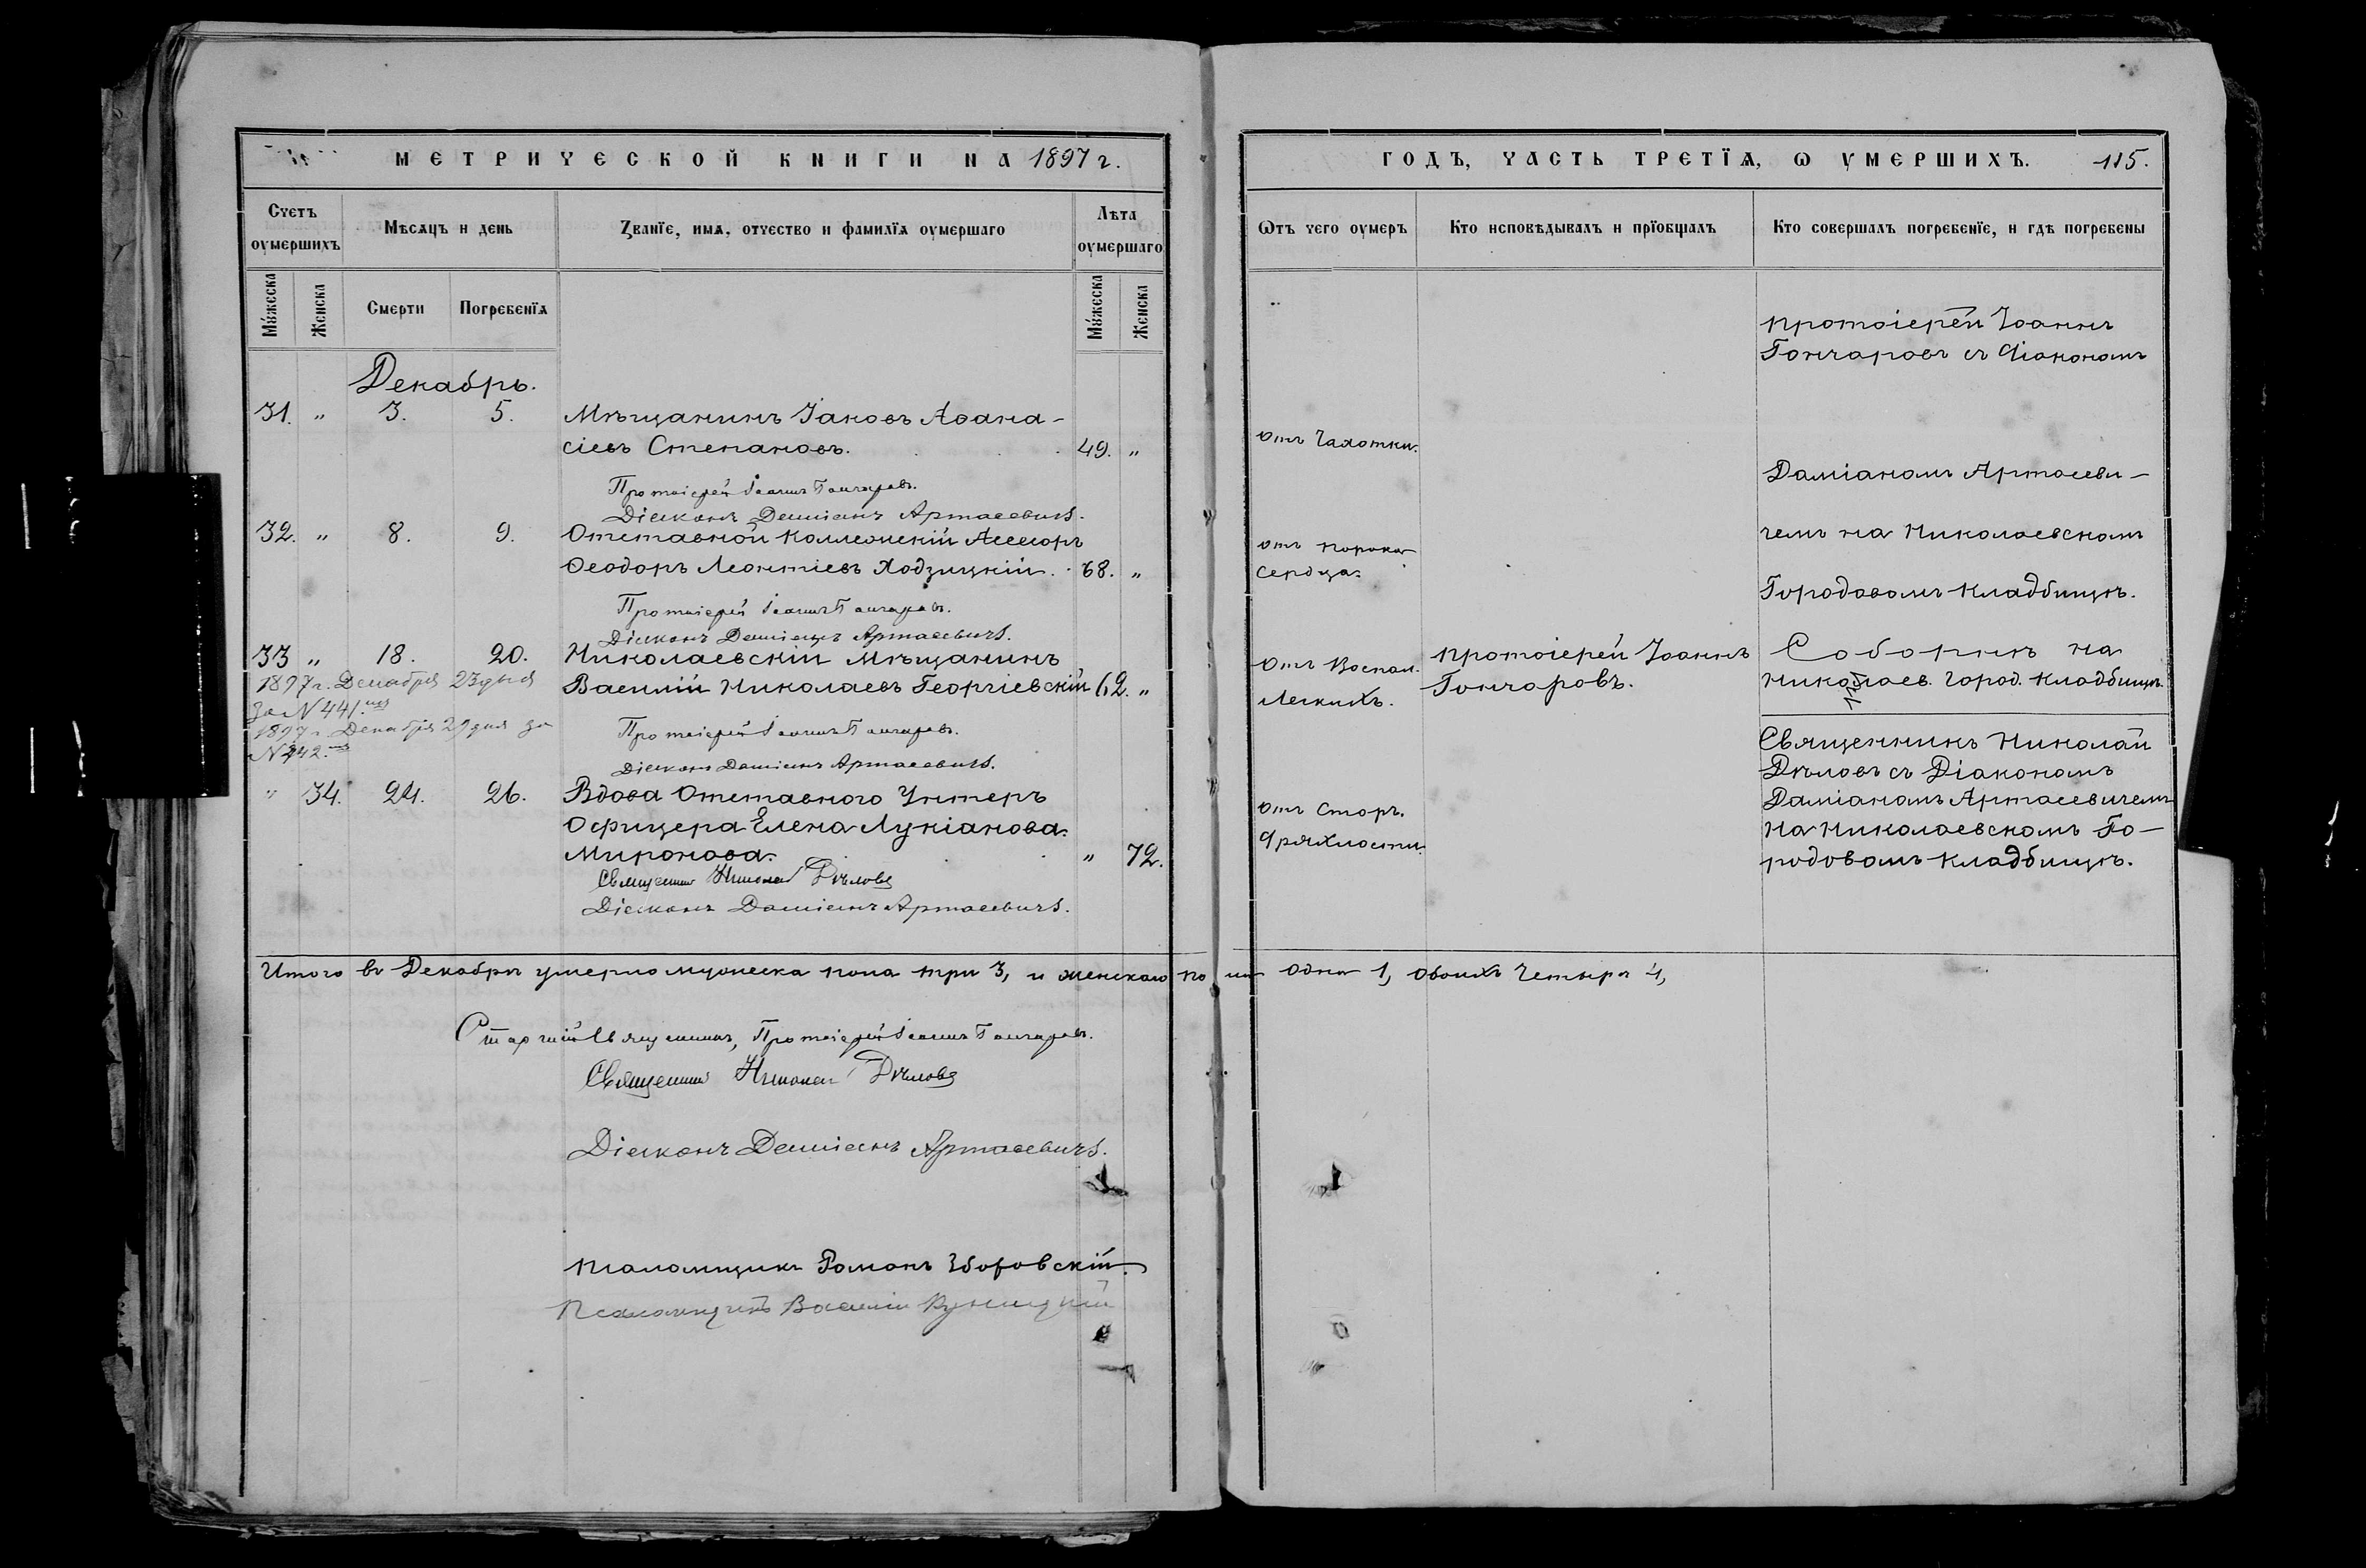 МЕТРИЧЕСКОЙ КНИГИ НА 1897 г.
Счетъ оумершихъ
Мѣсяцъ и день
Званїе, имя, отчество и фамилїя оумершаго
Лѣта оумершаго
Мужеска
Женска
Смерти
Погребенїя
Мужеска
Женска
Декабрь.
31. " 3. 5. Мѣщанинъ Іаковъ Аѳана-
сіевъ Степановъ. 49. "
Протоіерей Іоаннъ Гончаровъ.
Діаконъ Даміанъ Артасевичъ.
32. " 8. 9. Отставной Коллежскій Ассесоръ
Ѳеодоръ Леонтіевъ Ходзицкій. 68. "
Протоіерей Іоаннъ Гончаровъ.
Діаконъ Даміанъ Артасевичъ.
33 " 18. 20. Николаевскій Мѣщанинъ
Василій Николаевъ Георгіевскій 62. "
1897 г. Декабря 23 дня
за № 441.
1897 г. Декабря 29 дня за
№ 442.
Протоіерей Іоаннъ Гончаровъ.
Діаконъ Даміанъ Артасевичъ.
" 34. 24. 26. Вдова Отставного Унтеръ
Офицера Елена Лукіанова
Миронова. " 72.
Священникъ Николай Дѣловъ
Діаконъ Даміанъ Артасевичъ.
Итого въ Декабрѣ умерло мужеска пола три 3, и женскаго по ла одна 1, обоихъ четыре 4,
Старшій Священникъ, Протоіерей Іоаннъ Гончаровъ.
Священникъ Николай Дѣловъ
Діаконъ Даміанъ Артасевичъ.
Псаломщикъ Романъ Зборовскій.
Псаломщикъ Василій Куницкій
ГОДЪ, ЧАСТЬ ТРЕТЇЯ, Ѡ УМЕРШИХЪ. 115.
Ѿтъ чего оумеръ
Кто исповѣдывалъ и прїобщалъ
Кто совершалъ погребенїе, и гдѣ погребены
Протоіерей Іоаннъ
Гончаровъ съ Діакономъ
отъ Чахотки.
Даміаномъ Артасеви-
чемъ на Николаевскомъ
отъ порока
сердца.
Городовомъ кладбищѣ.
Отъ Воспал.
Легкихъ.
Протоіерей Іоаннъ
Гончаровъ.
Соборнѣ на
Николаев. Город. кладбищѣ.
Священникъ Николай
Дѣловъ съ Діакономъ
Даміаномъ Артасевичемъ
на Николаевскомъ Го-
родовомъ кладбищѣ.
отъ Стар.
дряхлости.